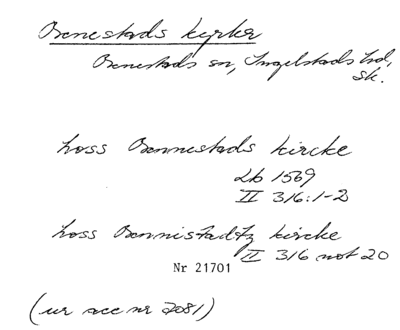 Benestads kyrka
Benestads sn, Ingelstads hd,
Sk.
hoss Bennestads kircke
Lb 1569
II 316:1-2
hoss Bennistadtz kircke
II 316 not 20
Nr 21701
(ur acc nr 2081)